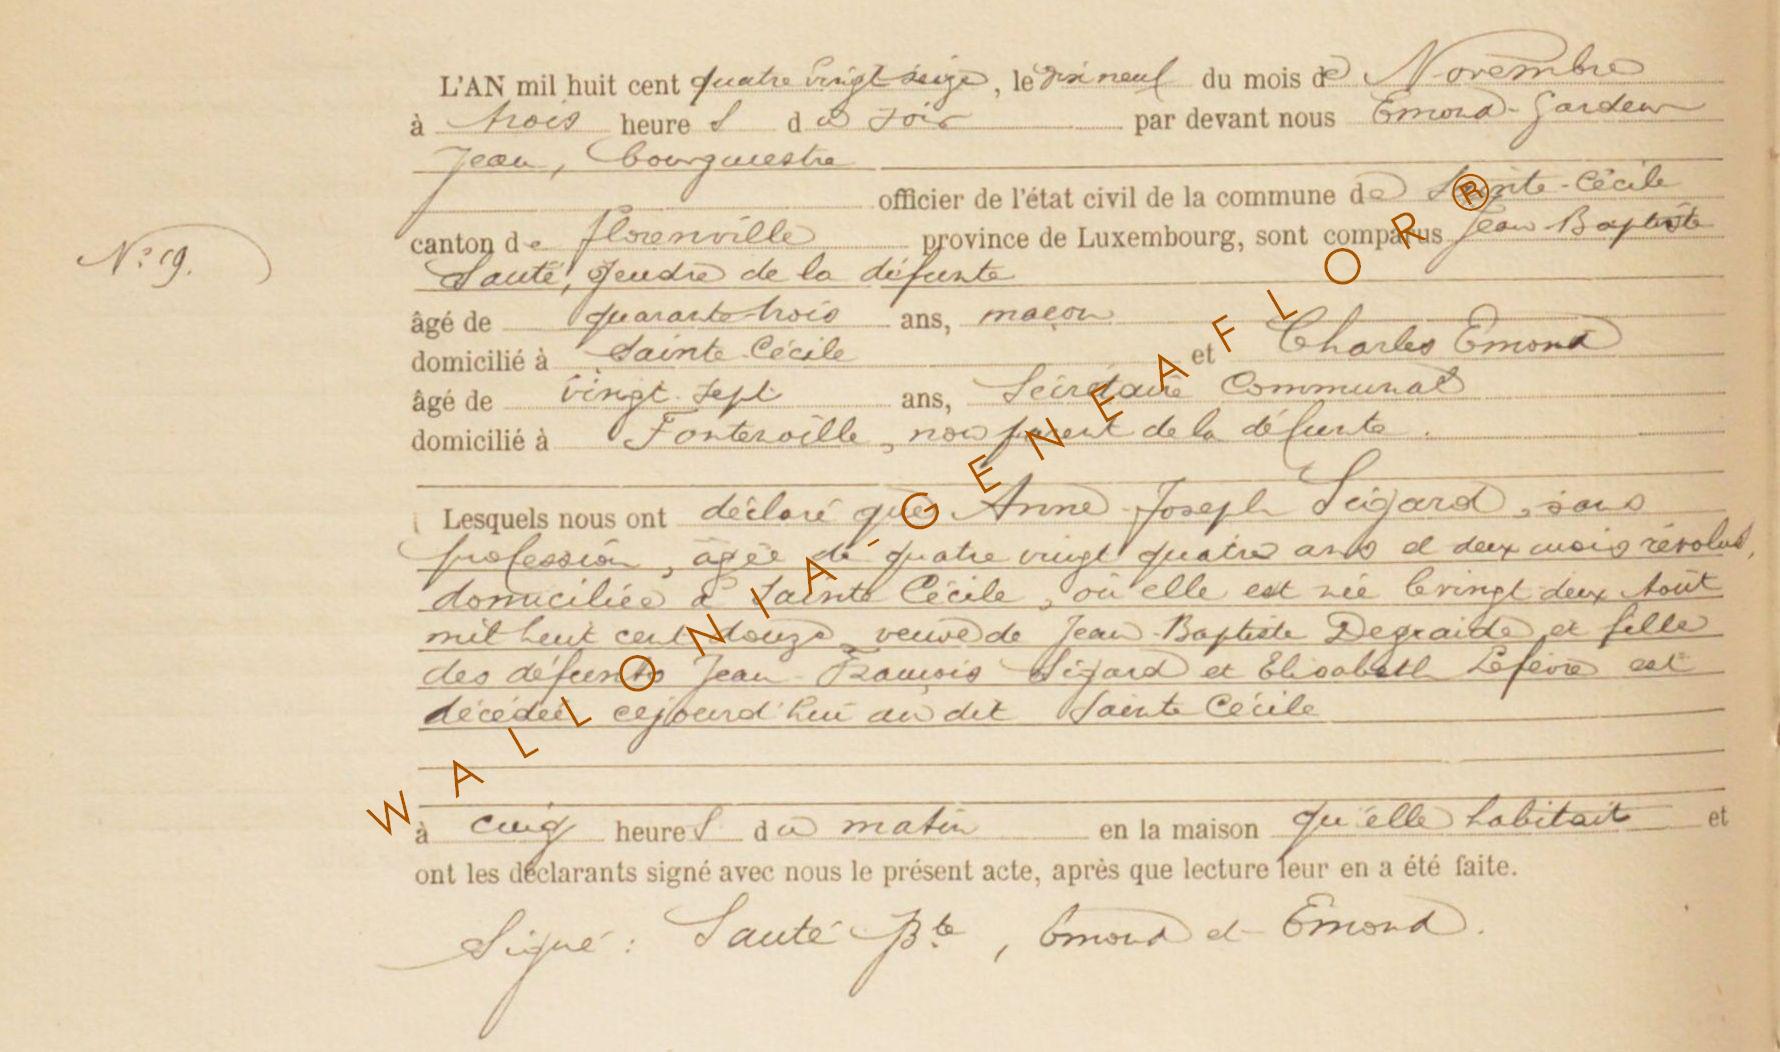 L'AN mil huit cent quatre vingt seize, le dix neuf du mois de Novembre
à trois heures du soir par devant nous Emond-Gardeur
Jean, bourgmestre
officier de l'état civil de la commune de Sainte-Cécile
N° 19.
canton de Florenville province de Luxembourg, sont comparus Jean Baptiste
Sauté, gendre de la défunte
âgé de quarante trois ans, maçon
domicilié à Sainte Cécile et Charles Emond
âgé de vingt sept ans, Secrétaire Communal
domicilié à Fontenoille, non parent de la défunte.
Lesquels nous ont déclaré que Anne Joseph Sigard, sans
profession, âgée de quatre vingt quatre ans et deux mois révolus,
domiciliée à Sainte Cécile, où elle est née le vingt deux Août
mil huit cent douze, veuve de Jean-Baptiste Degraide et fille
des défunts Jean François Sigard et Elisabeth Lefèvre est
décédée cejourd'hui au dit Sainte Cécile
à cinq heures du matin en la maison qu'elle habitait et
ont les déclarants signé avec nous le présent acte, après que lecture leur en a été faite.
Signé : Sauté Bte, Emond et Emond.
WALLONIA-GENEAFLOR®